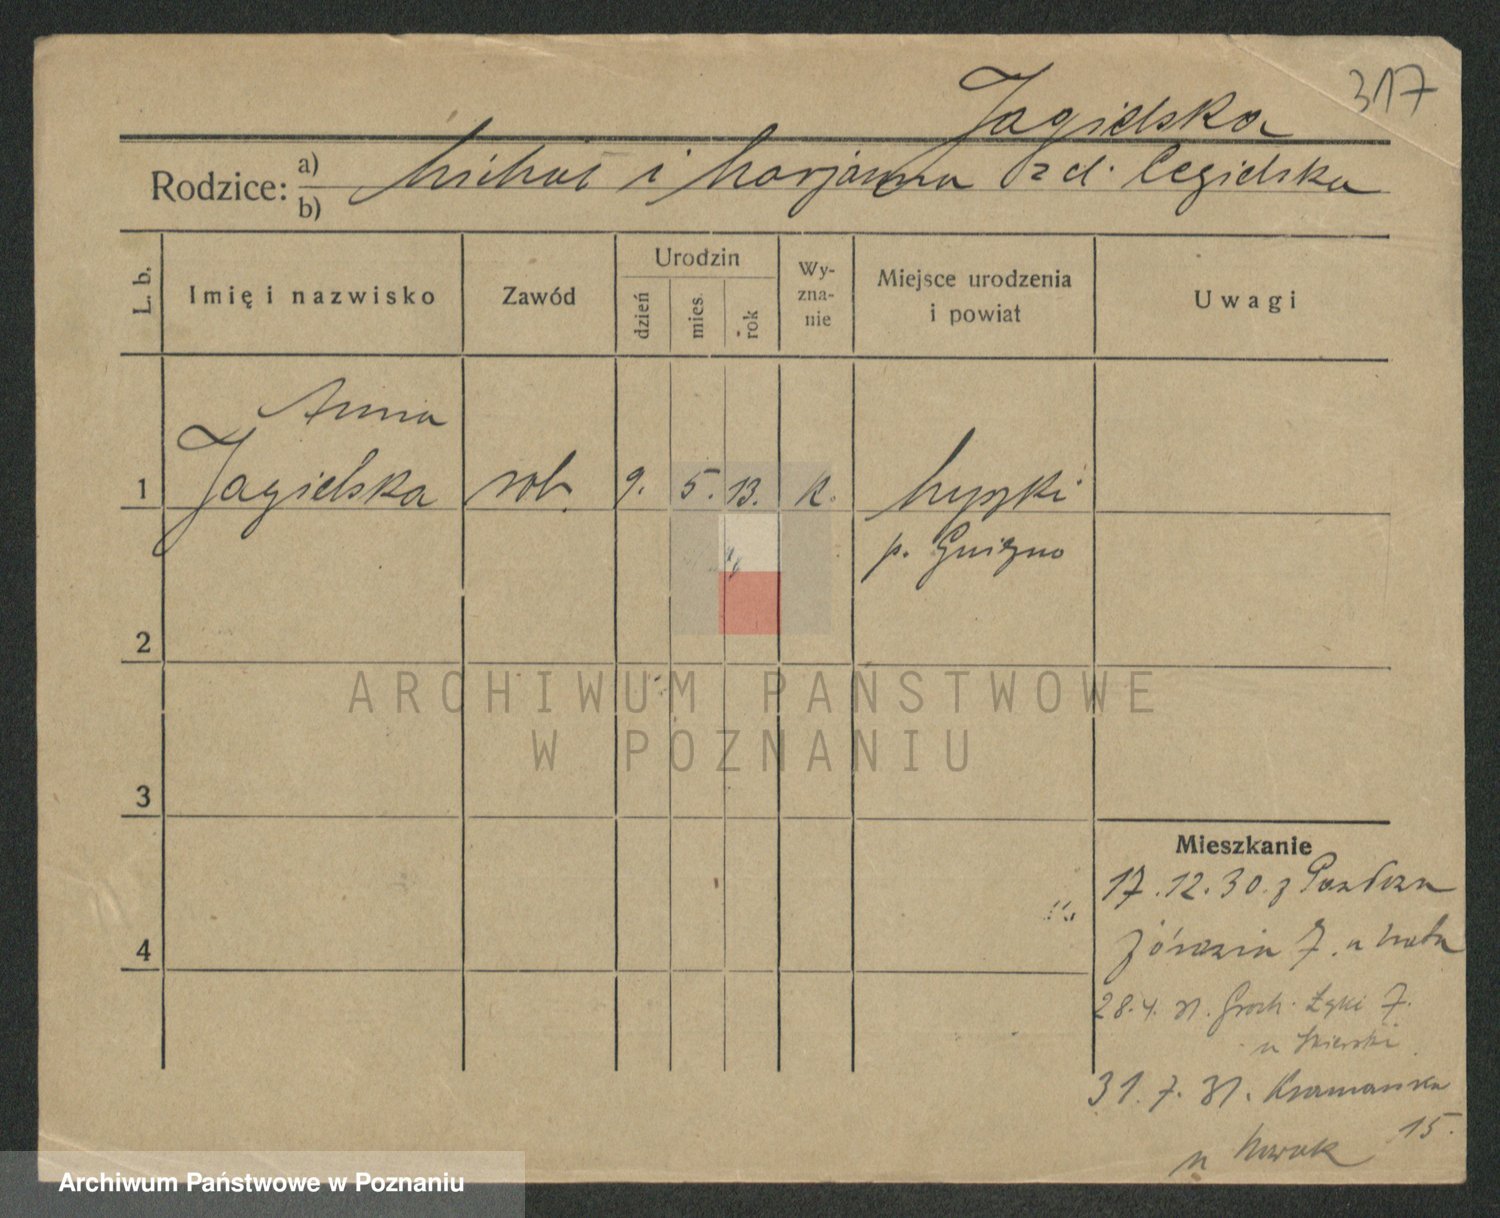 317
Jagielska
Rodzice: a) b) Michał i Marjanna zd. Cegielska
L. b.
Imię i nazwisko
Zawód
Urodzin
dzień
mies.
rok
Wy-
zna-
nie
Miejsce urodzenia
i powiat
Uwagi
Anna
1 Jagielska rob. 9. 5. 13. k.
p. Gniezno
2
ARCHIWUM PAŃSTWOWE
W POZNANIU
3
Mieszkanie
17.12.30. z
7. u
4
28.4.31. Groch. Łąki 7.
u
31.7.31. 
15.
u Nowak
Archiwum Państwowe w Poznaniu